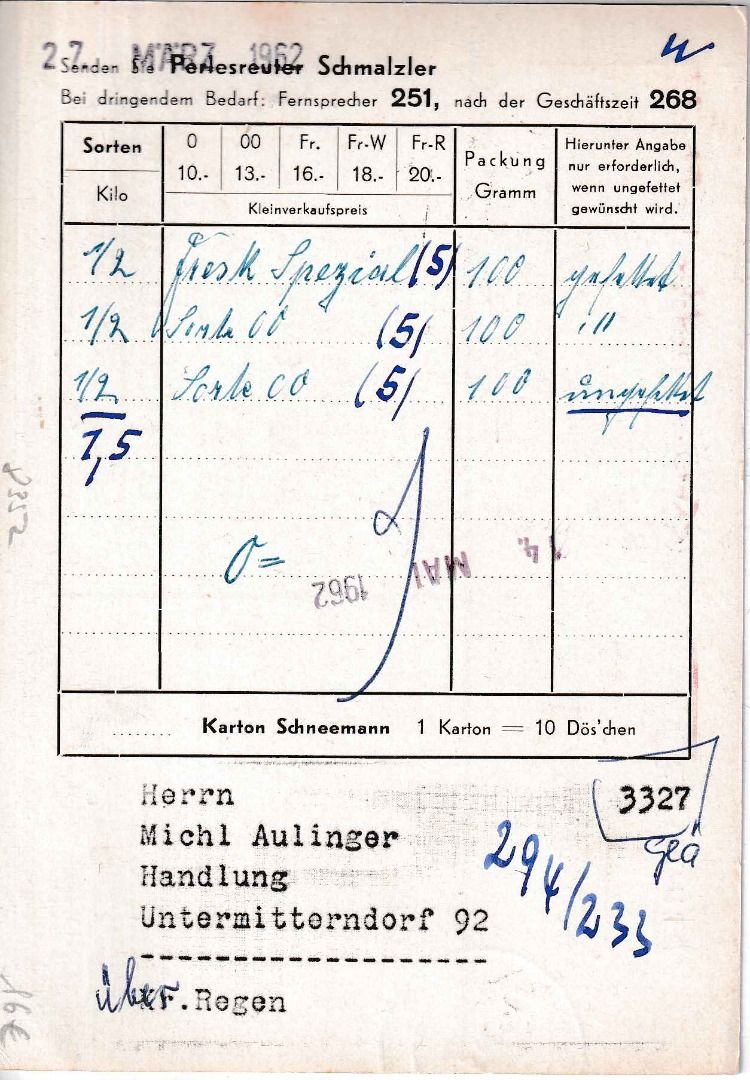 27. MÄRZ 1962
Senden Sie Perlesreuter Schmalzler
Bei dringendem Bedarf: Fernsprecher 251, nach der Geschäftszeit 268
Sorten
Kilo
0 00 Fr. Fr-W Fr-R
10.- 13.- 16.- 18.- 20.-
Kleinverkaufspreis
Packung
Gramm
Hierunter Angabe
nur erforderlich,
wenn ungefettet
gewünscht wird.
1/2 Fresk Spezial (5) 100 gefettet
1/2 Sorte 00 (5) 100 "
1/2 Sorte 00 (5) 100 ungefettet
1,5
0=
14. MAI 1962
Karton Schneemann 1 Karton = 10 Dös'chen
Herrn
Michl Aulinger
Handlung
Untermitterndorf 92
-------------------
über Kr. Regen
3327
294/233
16€